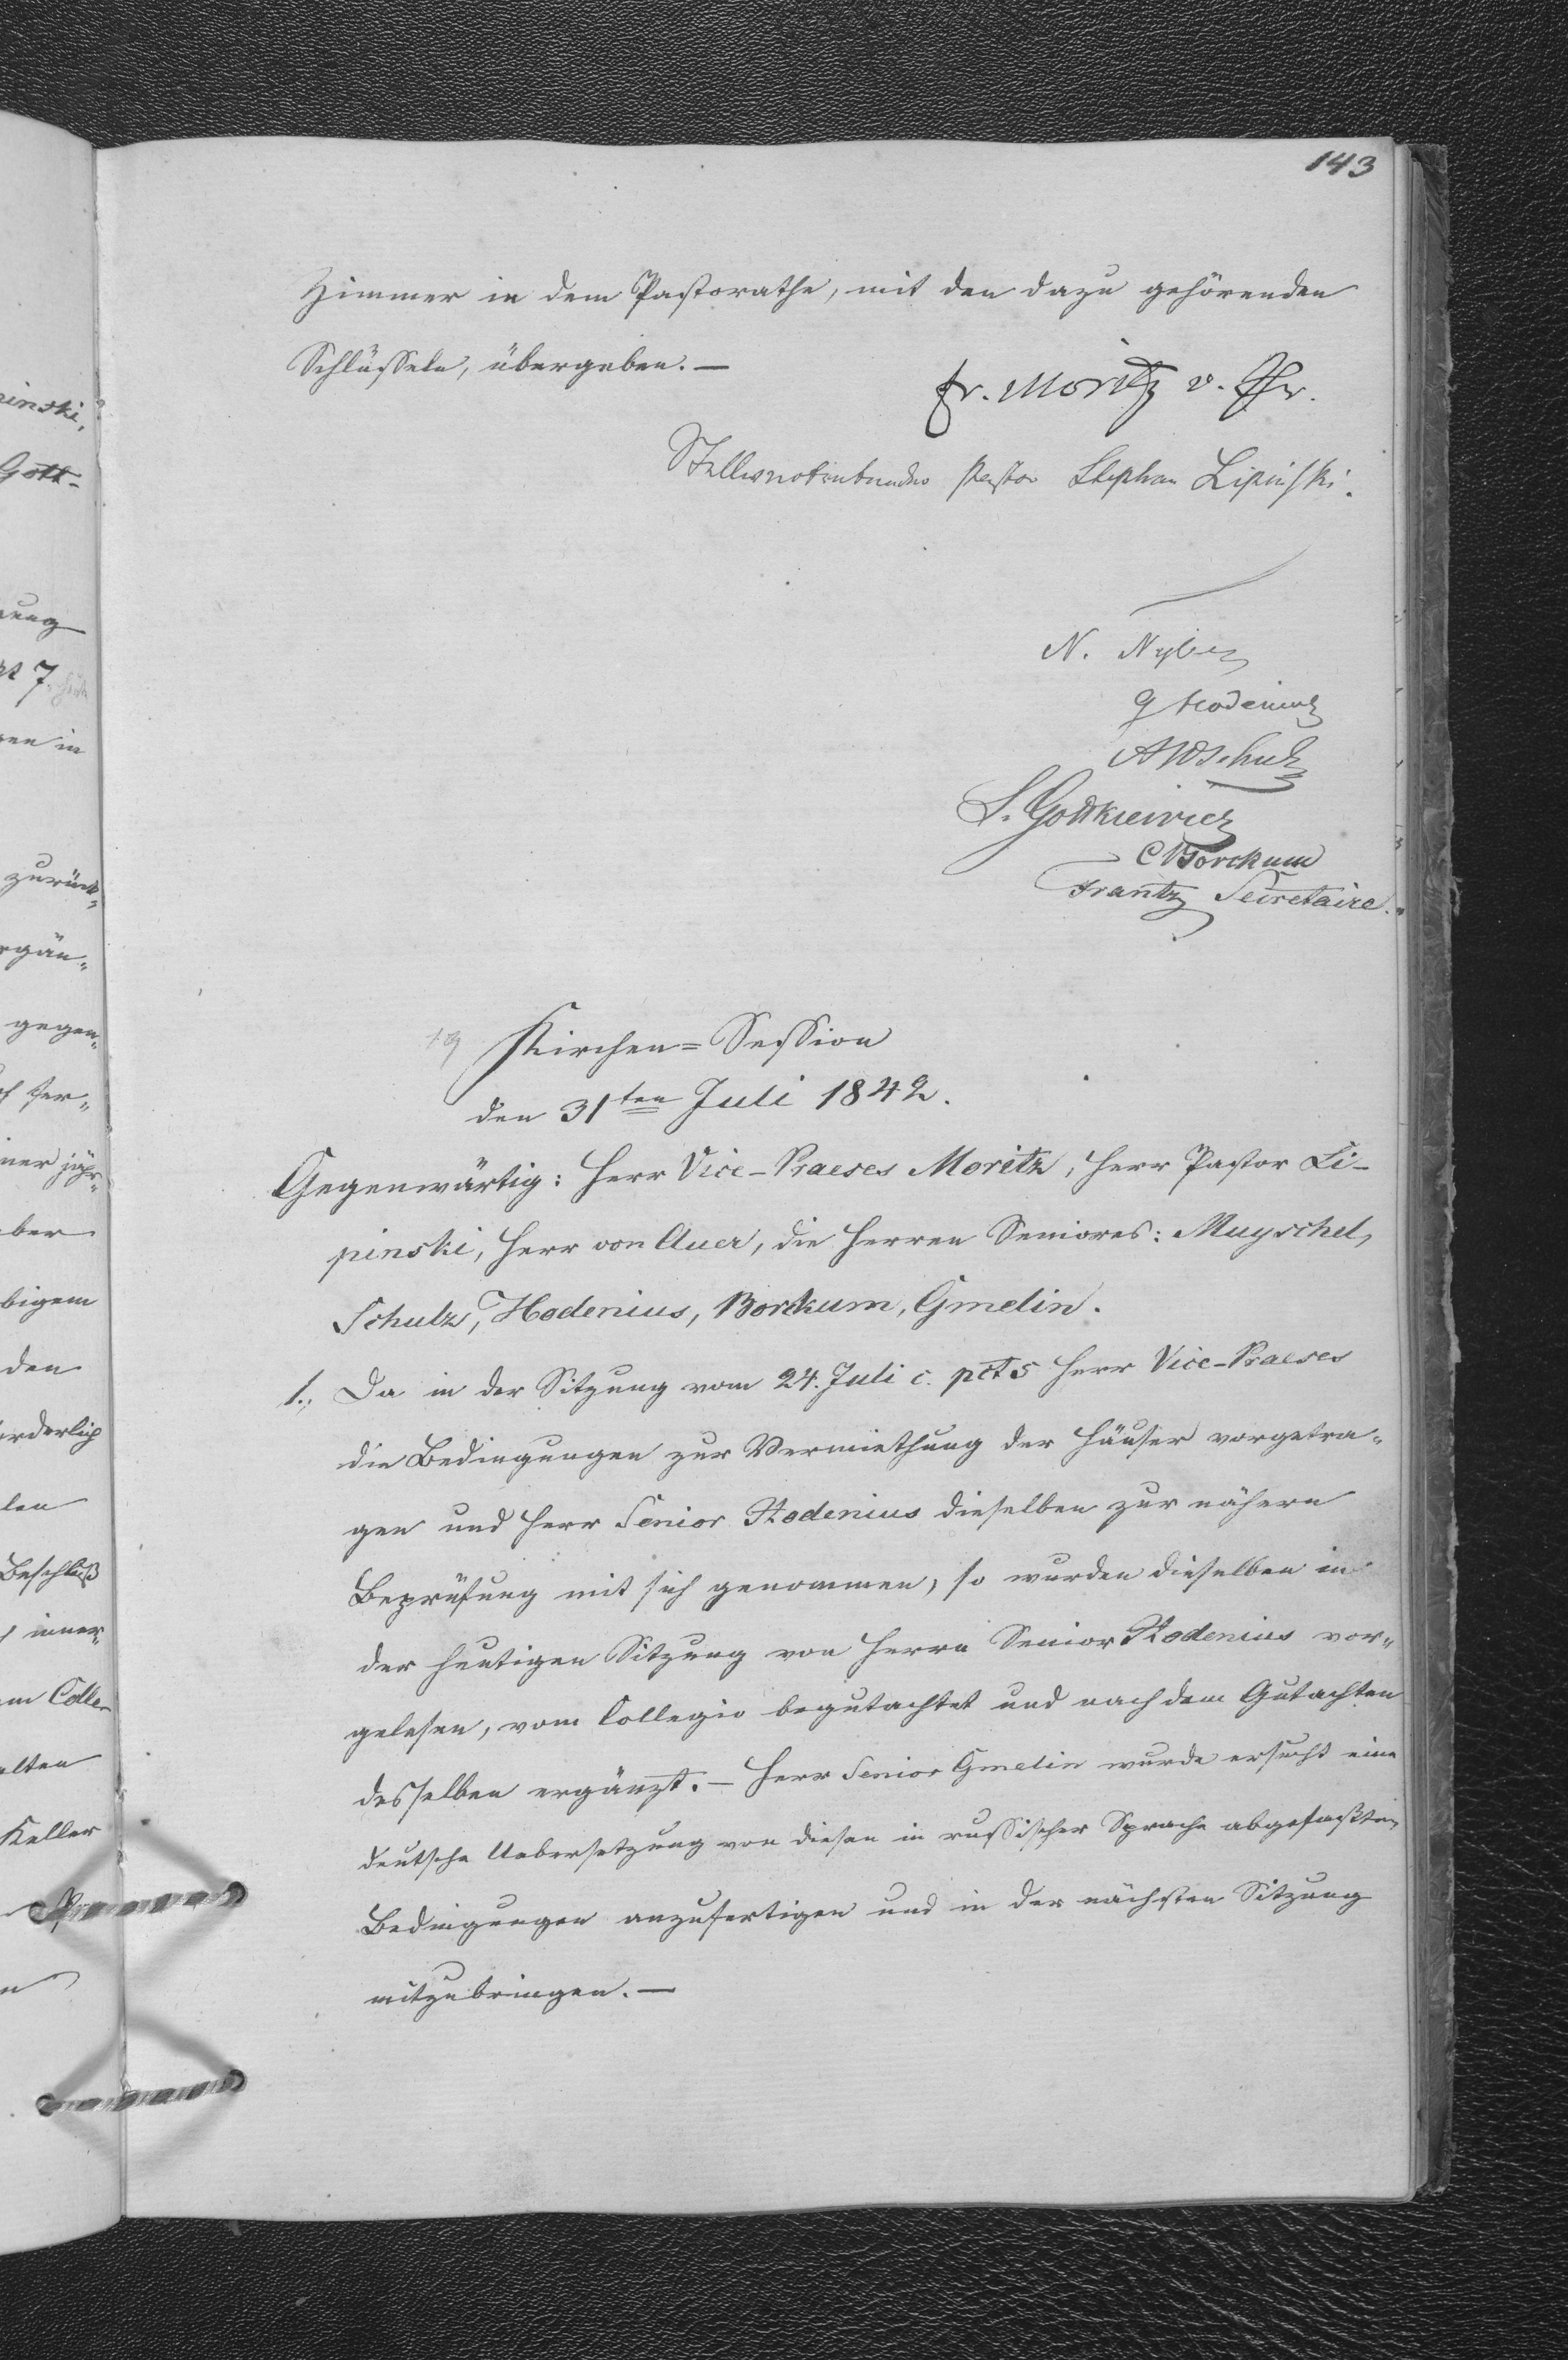 143
Zimmer in dem Pastorathe, mit den dazu gehörenden
Schlüsseln, übergeben. —
Fr. Moritz v.
Stellvertretender Pastor Stephan Lipinski.
N.
Hodenius
AWSchulz
S. Gottkiewicz
CBorckum
Frantz Secretaire.
Kirchen=Session
den 31ten Juli 1842.
Gegenwärtig: Herr Vice-Praeses Moritz, Herr Pastor Li-
pinski, Herr von Auer, die Herren Seniores: Muyschel,
Schulz, Hodenius, Borckum, Gmelin.
1., Da in der Sitzung vom 24. Juli c. pct 5 Herr Vice-Praeses
die Bedingungen zur Vermiethung der Häuser vorgetra„
gen und Herr Senior Hodenius dieselben zur nähern
Beprüfung mit sich genommen, so wurden dieselben in
der heutigen Sitzung von Herrn Senior Hodenius vor„
gelesen, vom Collegio begutachtet und nach dem Gutachten
desselben ergänzt. — Herr Senior Gmelin wurde ersucht eine
deutsche Uebersetzung von diesen in russischer Sprache abgefaßten
Bedingungen anzufertigen und in der nächsten Sitzung
mitzubringen. —